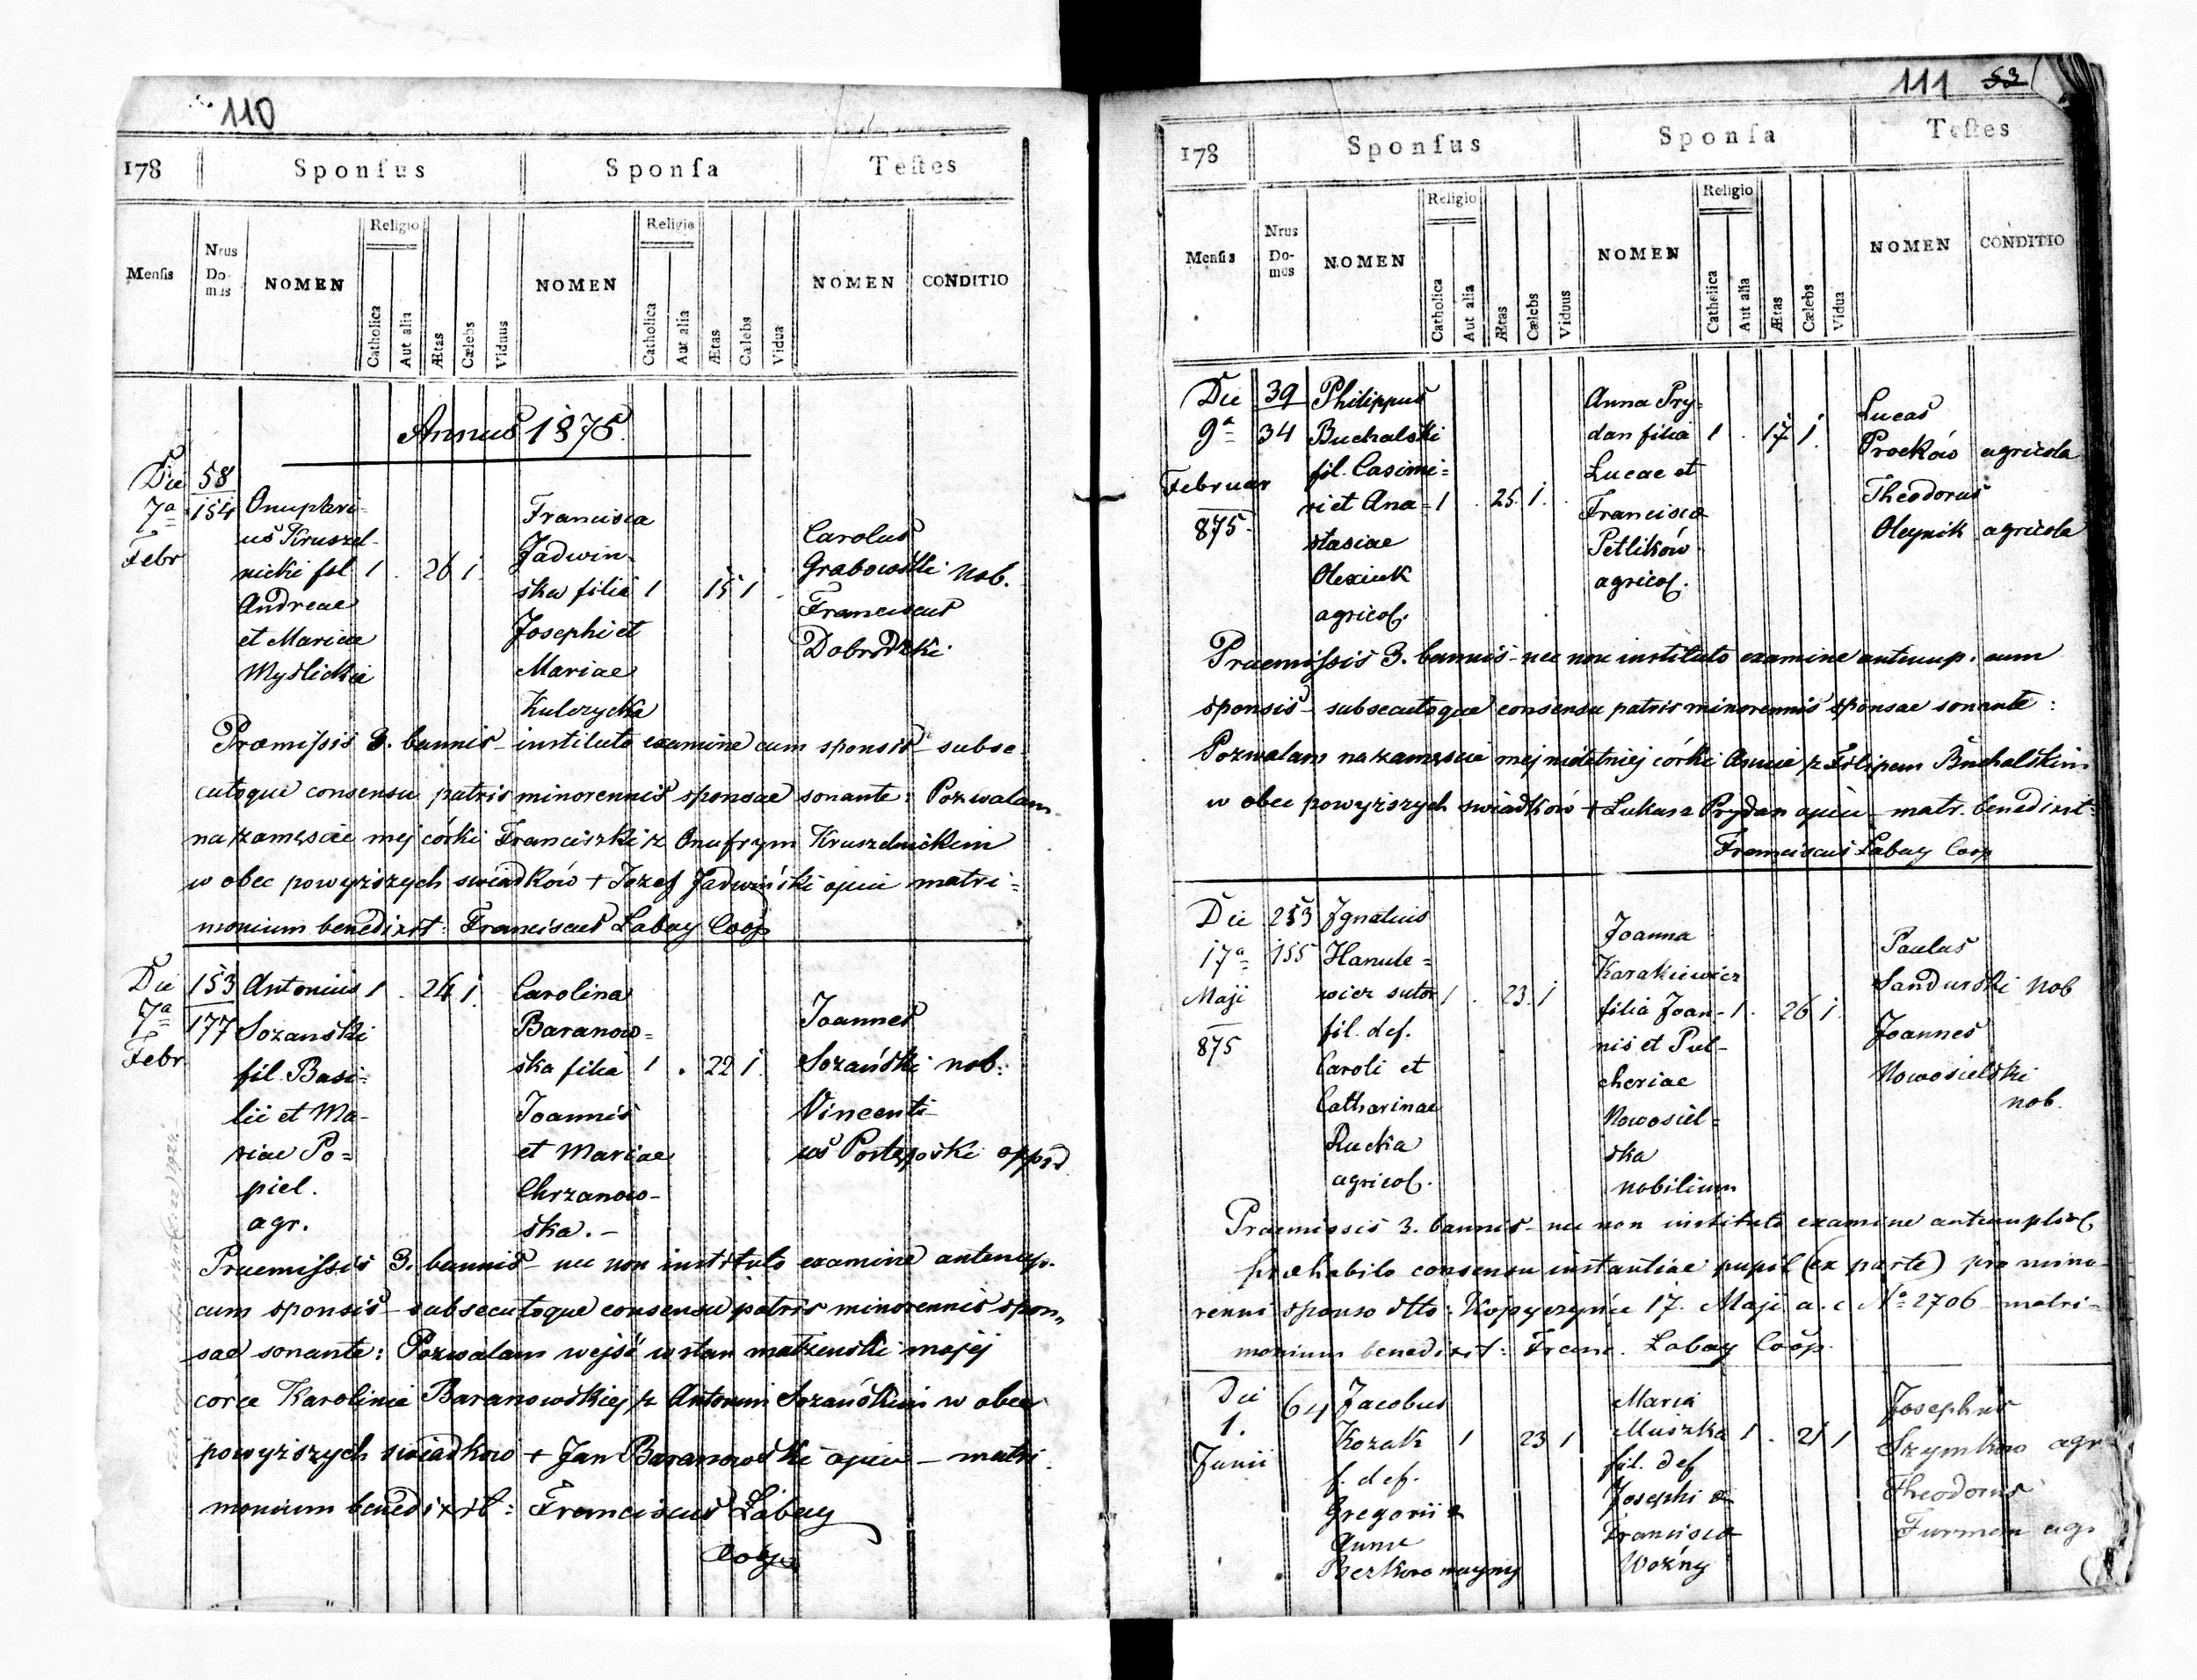 110
178 Sponsus Sponsa Testes
Mensis Nrus Domus NOMEN Religio Catholica Aut alia Ætas Cælebs Viduus NOMEN Religio Catholica Aut alia Ætas Cælebs Vidua NOMEN CONDITIO
Annus 1875.
Die 7a Febr
58
154
Onuphri-
us Kruszel-
nicki fil 1 . 26 1.
Andreae
et Mariae
Myslicka
Francisca
Jadwin-
ska filia 1 15 1
Josephi et
Mariae
Kulczycka
Carolus
Grabowski nob.
Franciscus
Dobrodzki
Praemissis 3. bannis - instituto examine cum sponsis - subse-
cutoque consensu patris minorennis sponsae sonante: Pozwalam
na zamęscie mej córki Franciszki z Onufrym Kruszelnickim
w obec powyższych swiadków + Józef Jadwiński ojciec matri=
monium benedixit: Franciscus Łabay Coop
Die 7a Febr
153
177
Antonius 1 . 24 1.
Sozanski
fil. Basi=
lii et Ma-
riae Po=
piel.
agr.
Carolina
Baranow=
ska filia 1 . 22 1.
Joannis
et Mariae
Chrzanow-
ska. -
Joannes
Sozański nob:
Vincenti-
us
Praemissis 3. bannis - nec non instituto examine antenup.
cum sponsis - subsecutoque consensu patris minorennis spon„
sae sonante: Pozwalam wejść w stan małżenski mojej
córce Karolinie Baranowskiej z Antonim Sozańskim w obec
powyższych swiadków + Jan Baranowski ojciec - matri
monium benedixit: Franciscus Łabay
Coop
111 53
178 Sponsus Sponsa Testes
Mensis Nrus Domus NOMEN Religio Catholica Aut alia Ætas Cælebs Viduus NOMEN Religio Catholica Aut alia Ætas Cælebs Vidua NOMEN CONDITIO
Die
9a
Februar
875.
39
34
Philippus
Buchalski
fil. Casimi=
ri et Ana= 1 . 25 1.
stasiae
Olexiuk
agricol.
Anna Pry-
dan filia 1 . 17 1.
Lucae et
Francisca
Petlików
agricol.
Lucas
Proćków agricola
Theodorus
Oleynik agricola
Praemissis 3. bannis - nec non instituto examine antenup. cum
sponsis - subsecutoque consensu patris minorennis sponsae sonante:
Pozwalam na zamęscie mej nieletniej córki Annie z Filipem Buchalskim
w obec powyższych swiadków + Łukasz Prydan ojciec - matr. benedixit:
Franciscus Łabay Coop
Die
17a
Maji
875
253
155
Ignatius
Hanule=
wicz sutor 1 . 23. 1
fil. def.
Caroli et
Catharinae
Rucka
agricol.
Joanna
Karakiewicz
filia Joan- 1. 26 1.
nis et Pul-
cheriae
Nowosiel=
ska
nobilium
Paulus
Sandurski nob
Joannes
Nowosielski
nob.
Praemissis 3. bannis - nec non instituto examine
praehabito consensu instantiae pupil (ex parte) pro mino-
renni sponso dtto: Kopyczyńce 17. Maji a. c No 2706 - matri-
monium benedixit: Franc. Łabay Coop.
Die
1.
Junii
64
Jacobus
Kozak 1 23 1
f. def.
Gregorii &
Annae
Maria
Muszka 1 . 21 1
fil. def
Josephi &
Francisca
Woźny
Josephus
Szymków agr
Theodorus
Furman agr